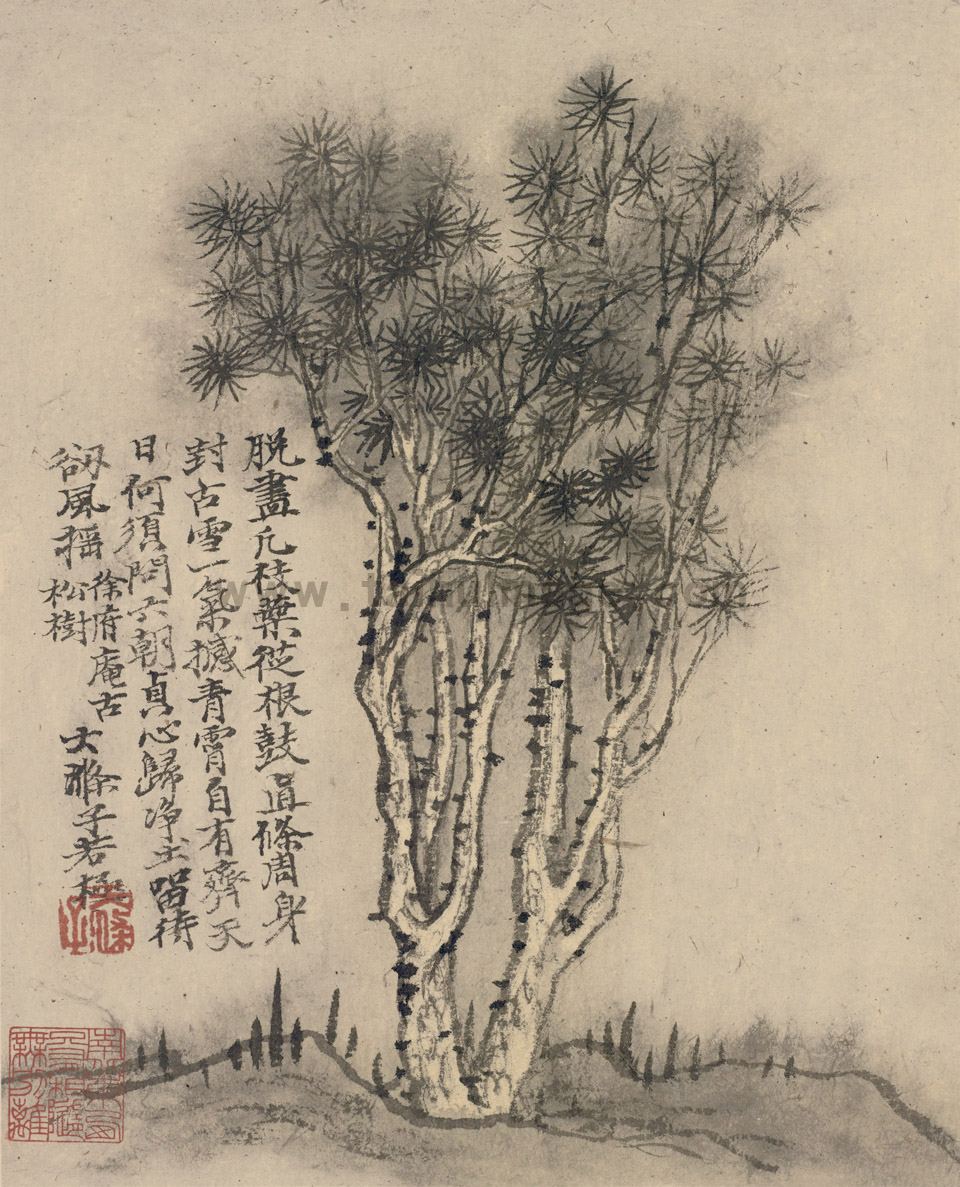 脫盡凡枝葉從根鼓直條周身
封古雪一氣撼青霄自有齊天
日何須問六朝貞心歸淨土留待
劫風搖
徐府庵古
松樹
大滌子若極